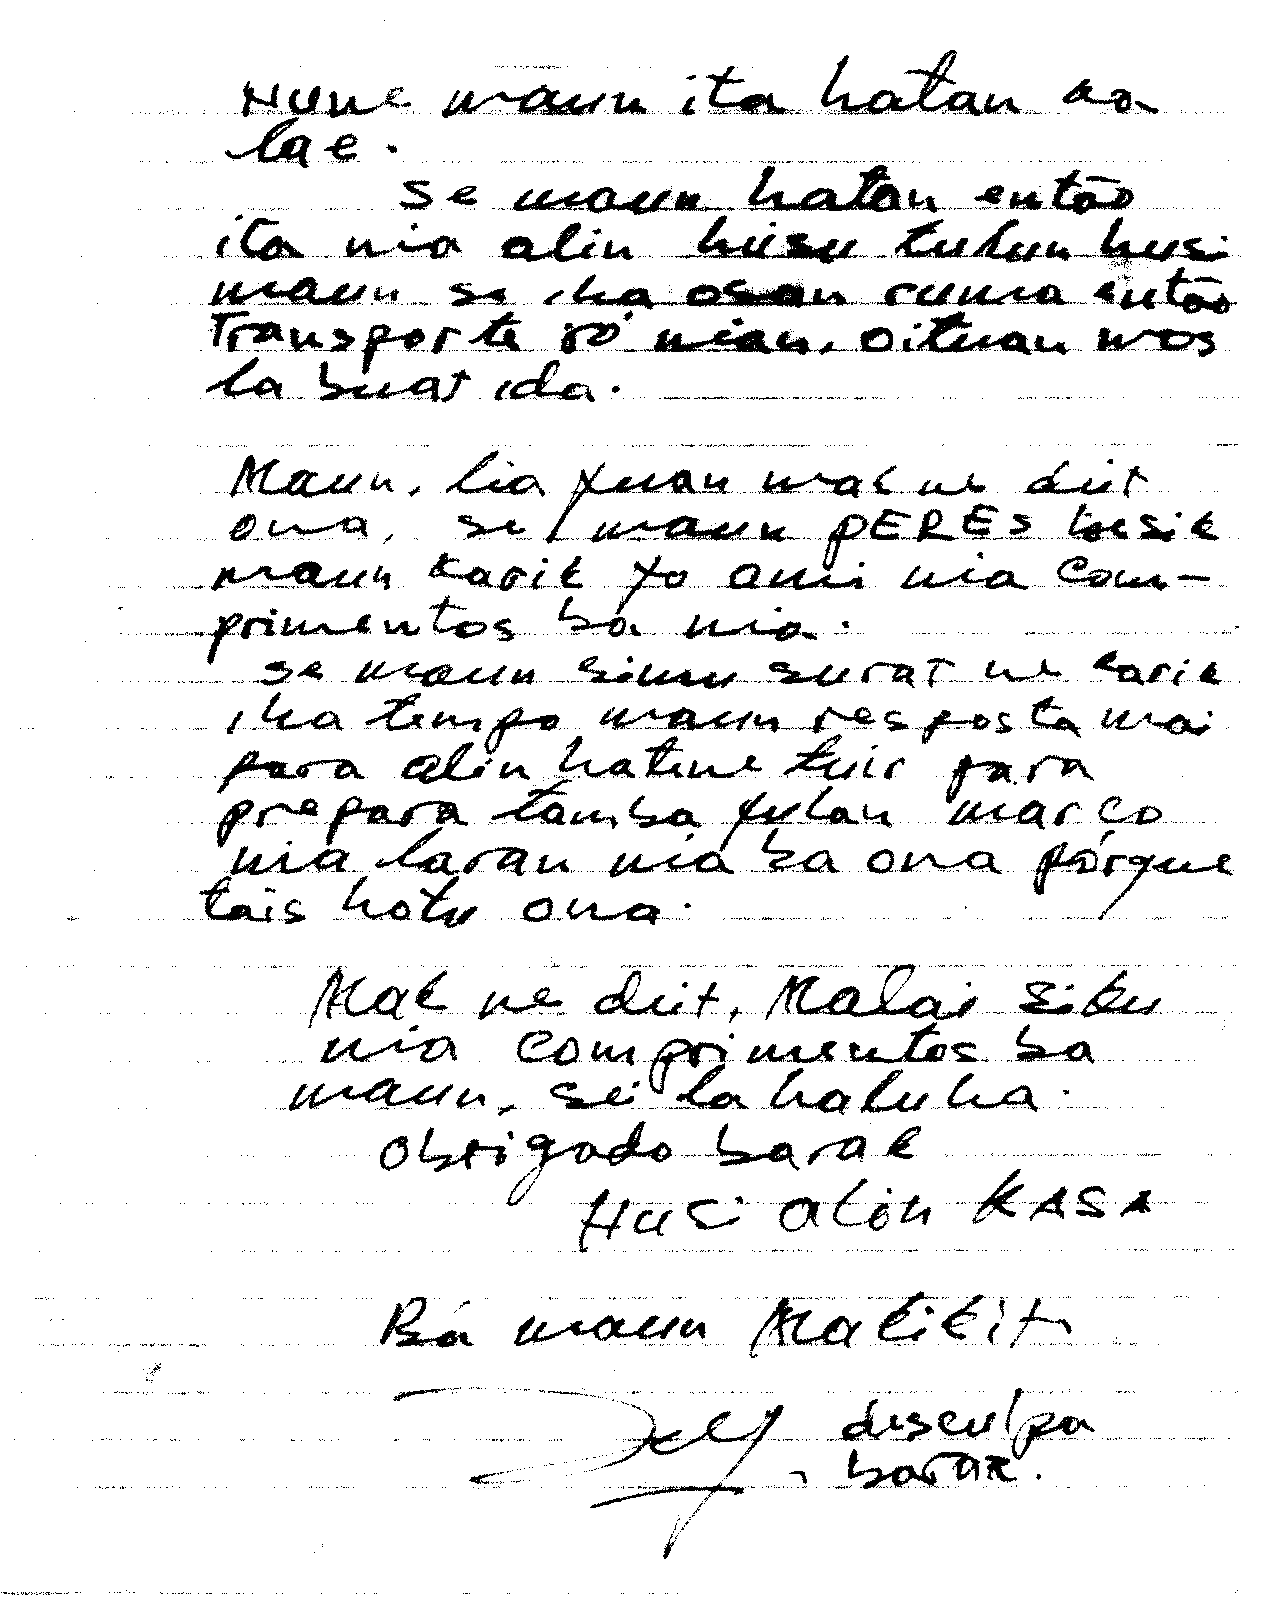 Nune maun ita hatan ka
lae.
se maun hatan então
ita nia alin husu tulun husi
maun se iha osan ruma então
Transporte ró nian, oituan mos
la buat ida.
Maun, lia fuan mak ne deit
ona, se maun PERES besik
maun karik fo ami nia com-
primentos ba nia.
se maun simu surat ne karik
iha tempo maun resposta mai
para alin hatene tuir para
prepara tamba fulan março
nia laran nia ba ona pórque
tais hotu ona.
Mak ne deit, Malai siku
nia comprimentos ba
maun, sei la haluha.
obrigado barak
Husi alin KASA
Bá maun Makikit
desculpa
barak.